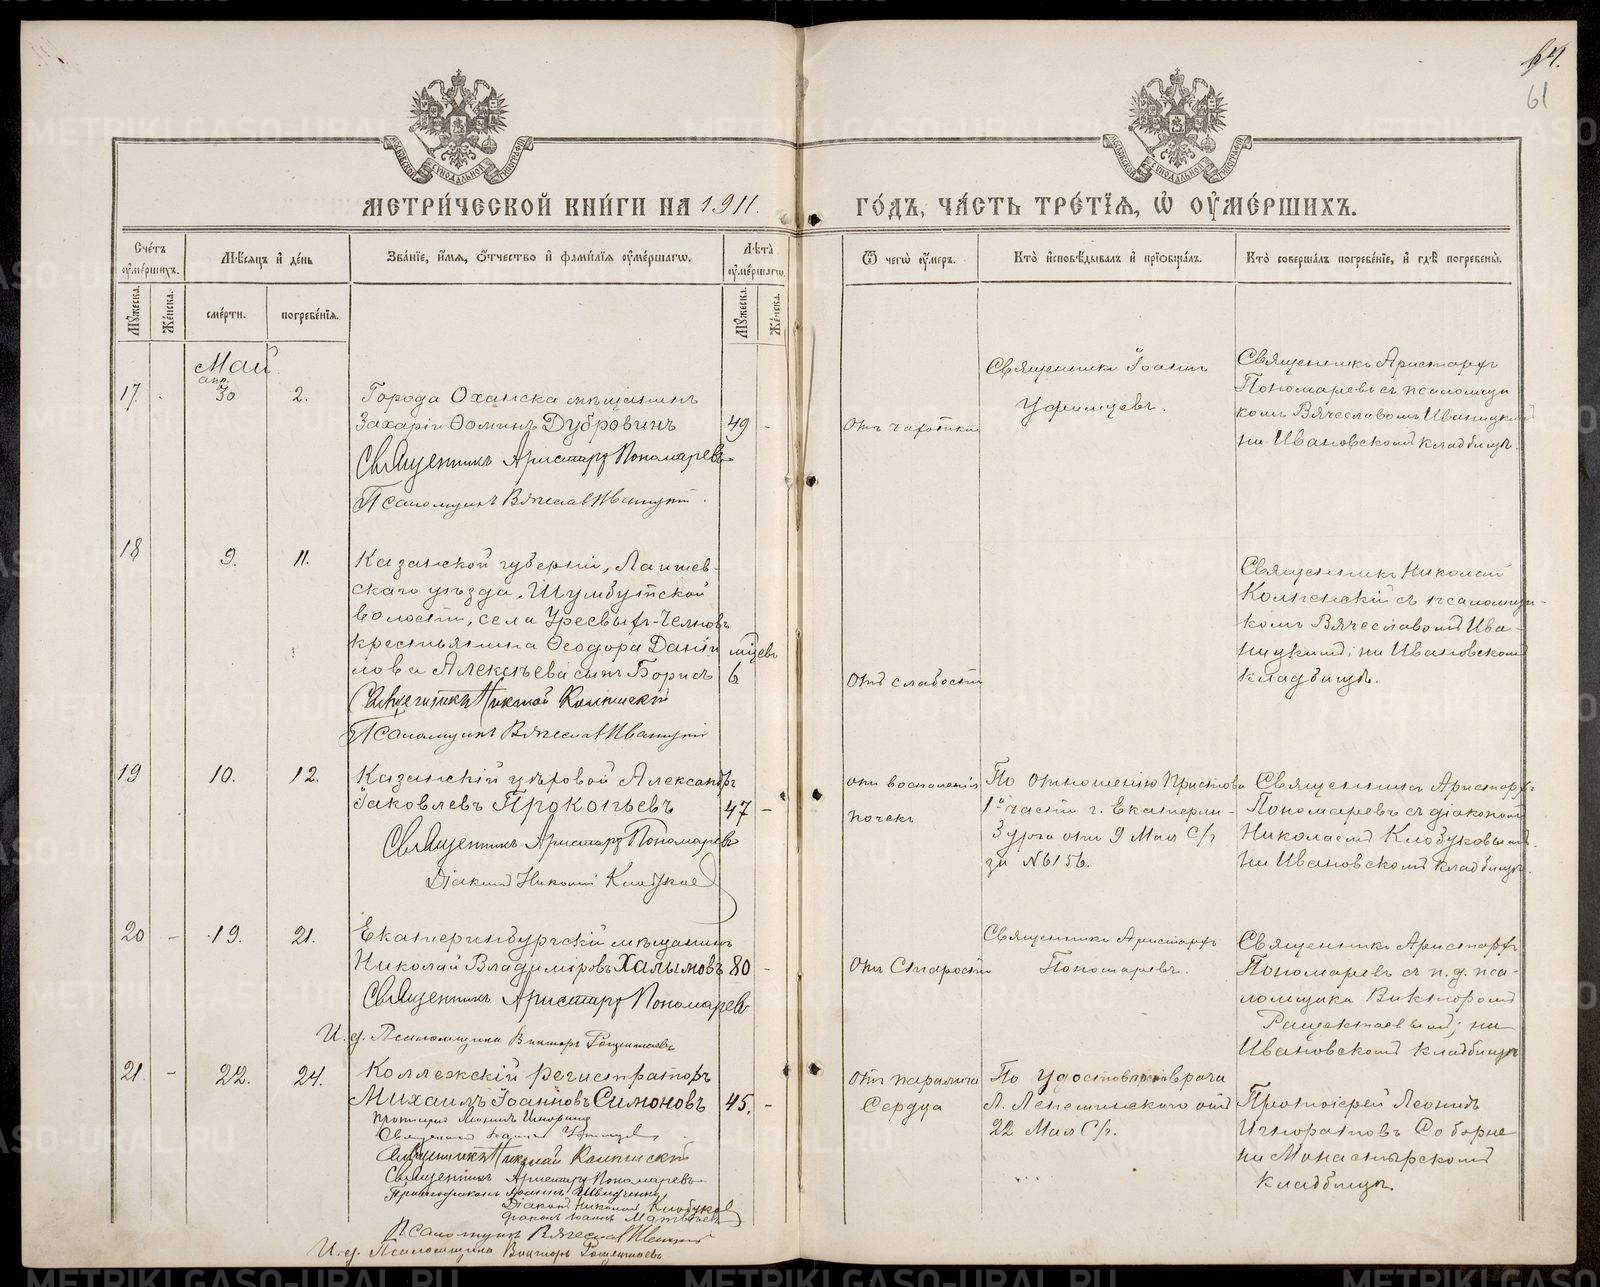 64.
61
МЕТРИ́ЧЕСКОЙ КНИ́ГИ НА 1911.
ГО́ДЪ, ЧА́СТЬ ТРЕ́ТІѦ, Ѡ ОУМЕ́РШИХЪ.
Сче́тъ оумершихъ.
Мѣсяцъ и де́нь
Зва́нїе, и҆мя, ѻ҆тчество и҆ фами́лїя оумершагѡ.
Лѣта оумершагѡ.
Ѿ чегѡ̀ оумеръ.
Кто̀ и҆сповѣдывалъ и҆ прїѡбща́лъ.
Кто̀ соверша́лъ погребе́нїе, и҆ гдѣ̀ погребены̀.
Мꙋжеска.
Же́нска.
сме́рти.
погребе́нїя.
Мꙋжеска.
Же́нска.
Май
17.
апр. 30
2.
Города Оханска мѣщанинъ
Захарій Ѳоминъ Дубровинъ
49 -
Священникъ Аристархъ Пономаревъ
Псаломщикъ Вячеслав Иваницкій.
Отъ чахотки
Священникъ Іоаннъ
Уфимцевъ.
Священникъ Аристархъ
Пономаревъ съ псаломщи
комъ Вячеславомъ Иваницкимъ
на Ивановскомъ кладбищѣ.
18
9.
11.
Казанской губерніи, Лаишев-
скаго уѣзда, Шумбутской
волости, села
крестьянина Ѳеодора Даніи
лова Алексѣева сынъ Борисъ
мѣсцевъ
6
Священникъ Николай
Псаломщикъ Вячеслав Иваницкій
Отъ слабости
Священникъ Николай
съ псаломщи-
комъ Вячеславомъ Ива-
ницкимъ; на Ивановскомъ
кладбищѣ.
19
10.
12.
Казанскій цеховой Александръ
Іаковлевъ Прокопьевъ
47 -
Священникъ Аристархъ Пономаревъ
Діаконъ Николай Клобуков
отъ воспаленія
почекъ
По отношенію Пристава
1й части г. Екатерин-
бурга отъ 9 Мая С/г
за №6156.
Священникъ Аристархъ
Пономаревъ съ діакономъ
Николаемъ Клобуковымъ
на Ивановскомъ кладбищѣ.
20 -
19.
21.
Екатеринбургскій мѣщанинъ
Николай Владиміровъ Халымовъ
80 -
Священникъ Аристархъ Пономаревъ
И. д. Псаломщика Викторъ
Отъ старости
Священникъ Аристархъ
Пономаревъ.
Священникъ Аристархъ
Пономаревъ съ и. д. пса-
ломщика Викторомъ
на
Ивановскомъ кладбищѣ
21. -
22.
24.
Коллежскій регистраторъ
Михаилъ Іоанновъ Симоновъ
45. -
Протоіерей Леонидъ Игноратовъ
Священникъ Іоаннъ Уфимцевъ
Священникъ Николай
Священникъ Аристархъ Пономаревъ
Протодіаконъ Іоаннъ
Діаконъ Николай Клобуков
Діаконъ Іоаннъ Матвѣевъ
Псаломщикъ Вячеслав Иваницкій
И. д. Псаломщика Викторъ
Отъ паралича
сердца
По удостовѣренію врача
отъ
22 Мая С/г.
Протоіерей Леонидъ
Игноратовъ Соборне
на Монастырскомъ
кладбищѣ.
METRIKI.GASO-URAL.RU